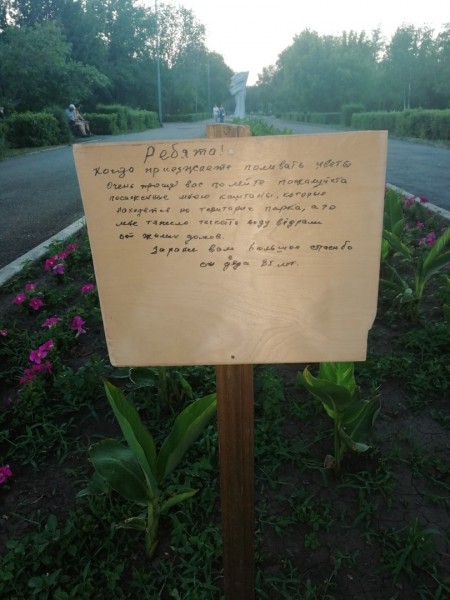 Ребята!
когда приезжаете поливать цветы
очень прошу вас полейте пожалуйста
посаженые мною каштаны, которые
находятся на територии парка, а то
мне тяжело таскать воду вёдрами
от жилых домов.
Заранее вам большое спасибо
от деда 85 лет.